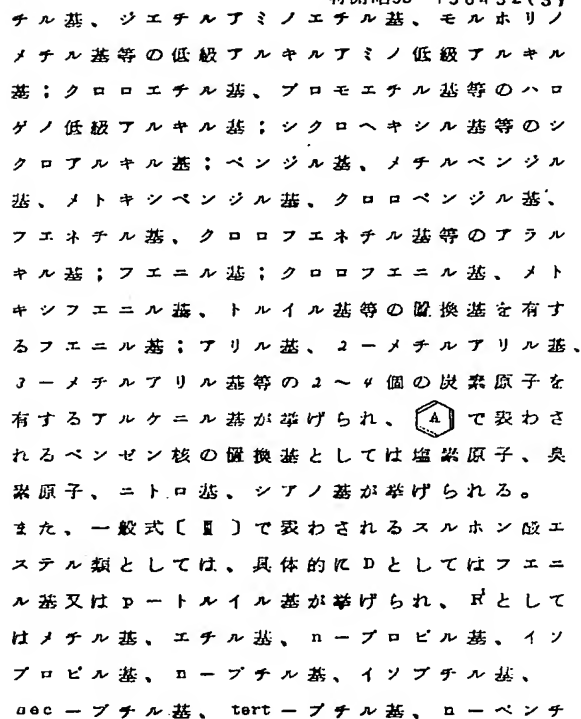 チル基、ジエチルアミノエチル基、モルホリノ
メチル基等の低級アルキルアミノ低級アルキル
基；クロロエチル基、ブロモエチル基等のハロ
ゲノ低級アルキル基；シクロヘキシル基等のシ
クロアルキル基；ベンジル基、メチルベンジル
基、メトキシベンジル基、クロロベンジル基、
フエネチル基、クロロフエネチル基等のアラル
キル基；フエニル基；クロロフエニル基、メト
キシフエニル基、トルイル基等の置換基を有す
るフエニル基；アリル基、2－メチルアリル基、
3－メチルアリル基等の2～4個の炭素原子を
有するアルケニル基が挙げられ、Aで表わさ
れるベンゼン核の置換基としては塩素原子、臭
素原子、ニトロ基、シアノ基が挙げられる。
また、一般式〔〕で表わされるスルホン酸エ
ステル類としては、具体的にDとしてはフエニ
ル基又はp－トルイル基が挙げられ、R¹として
はメチル基、エチル基、n－プロピル基、イソ
プロピル基、n－ブチル基、イソブチル基、
sec－ブチル基、tert－ブチル基、n－ペンチ